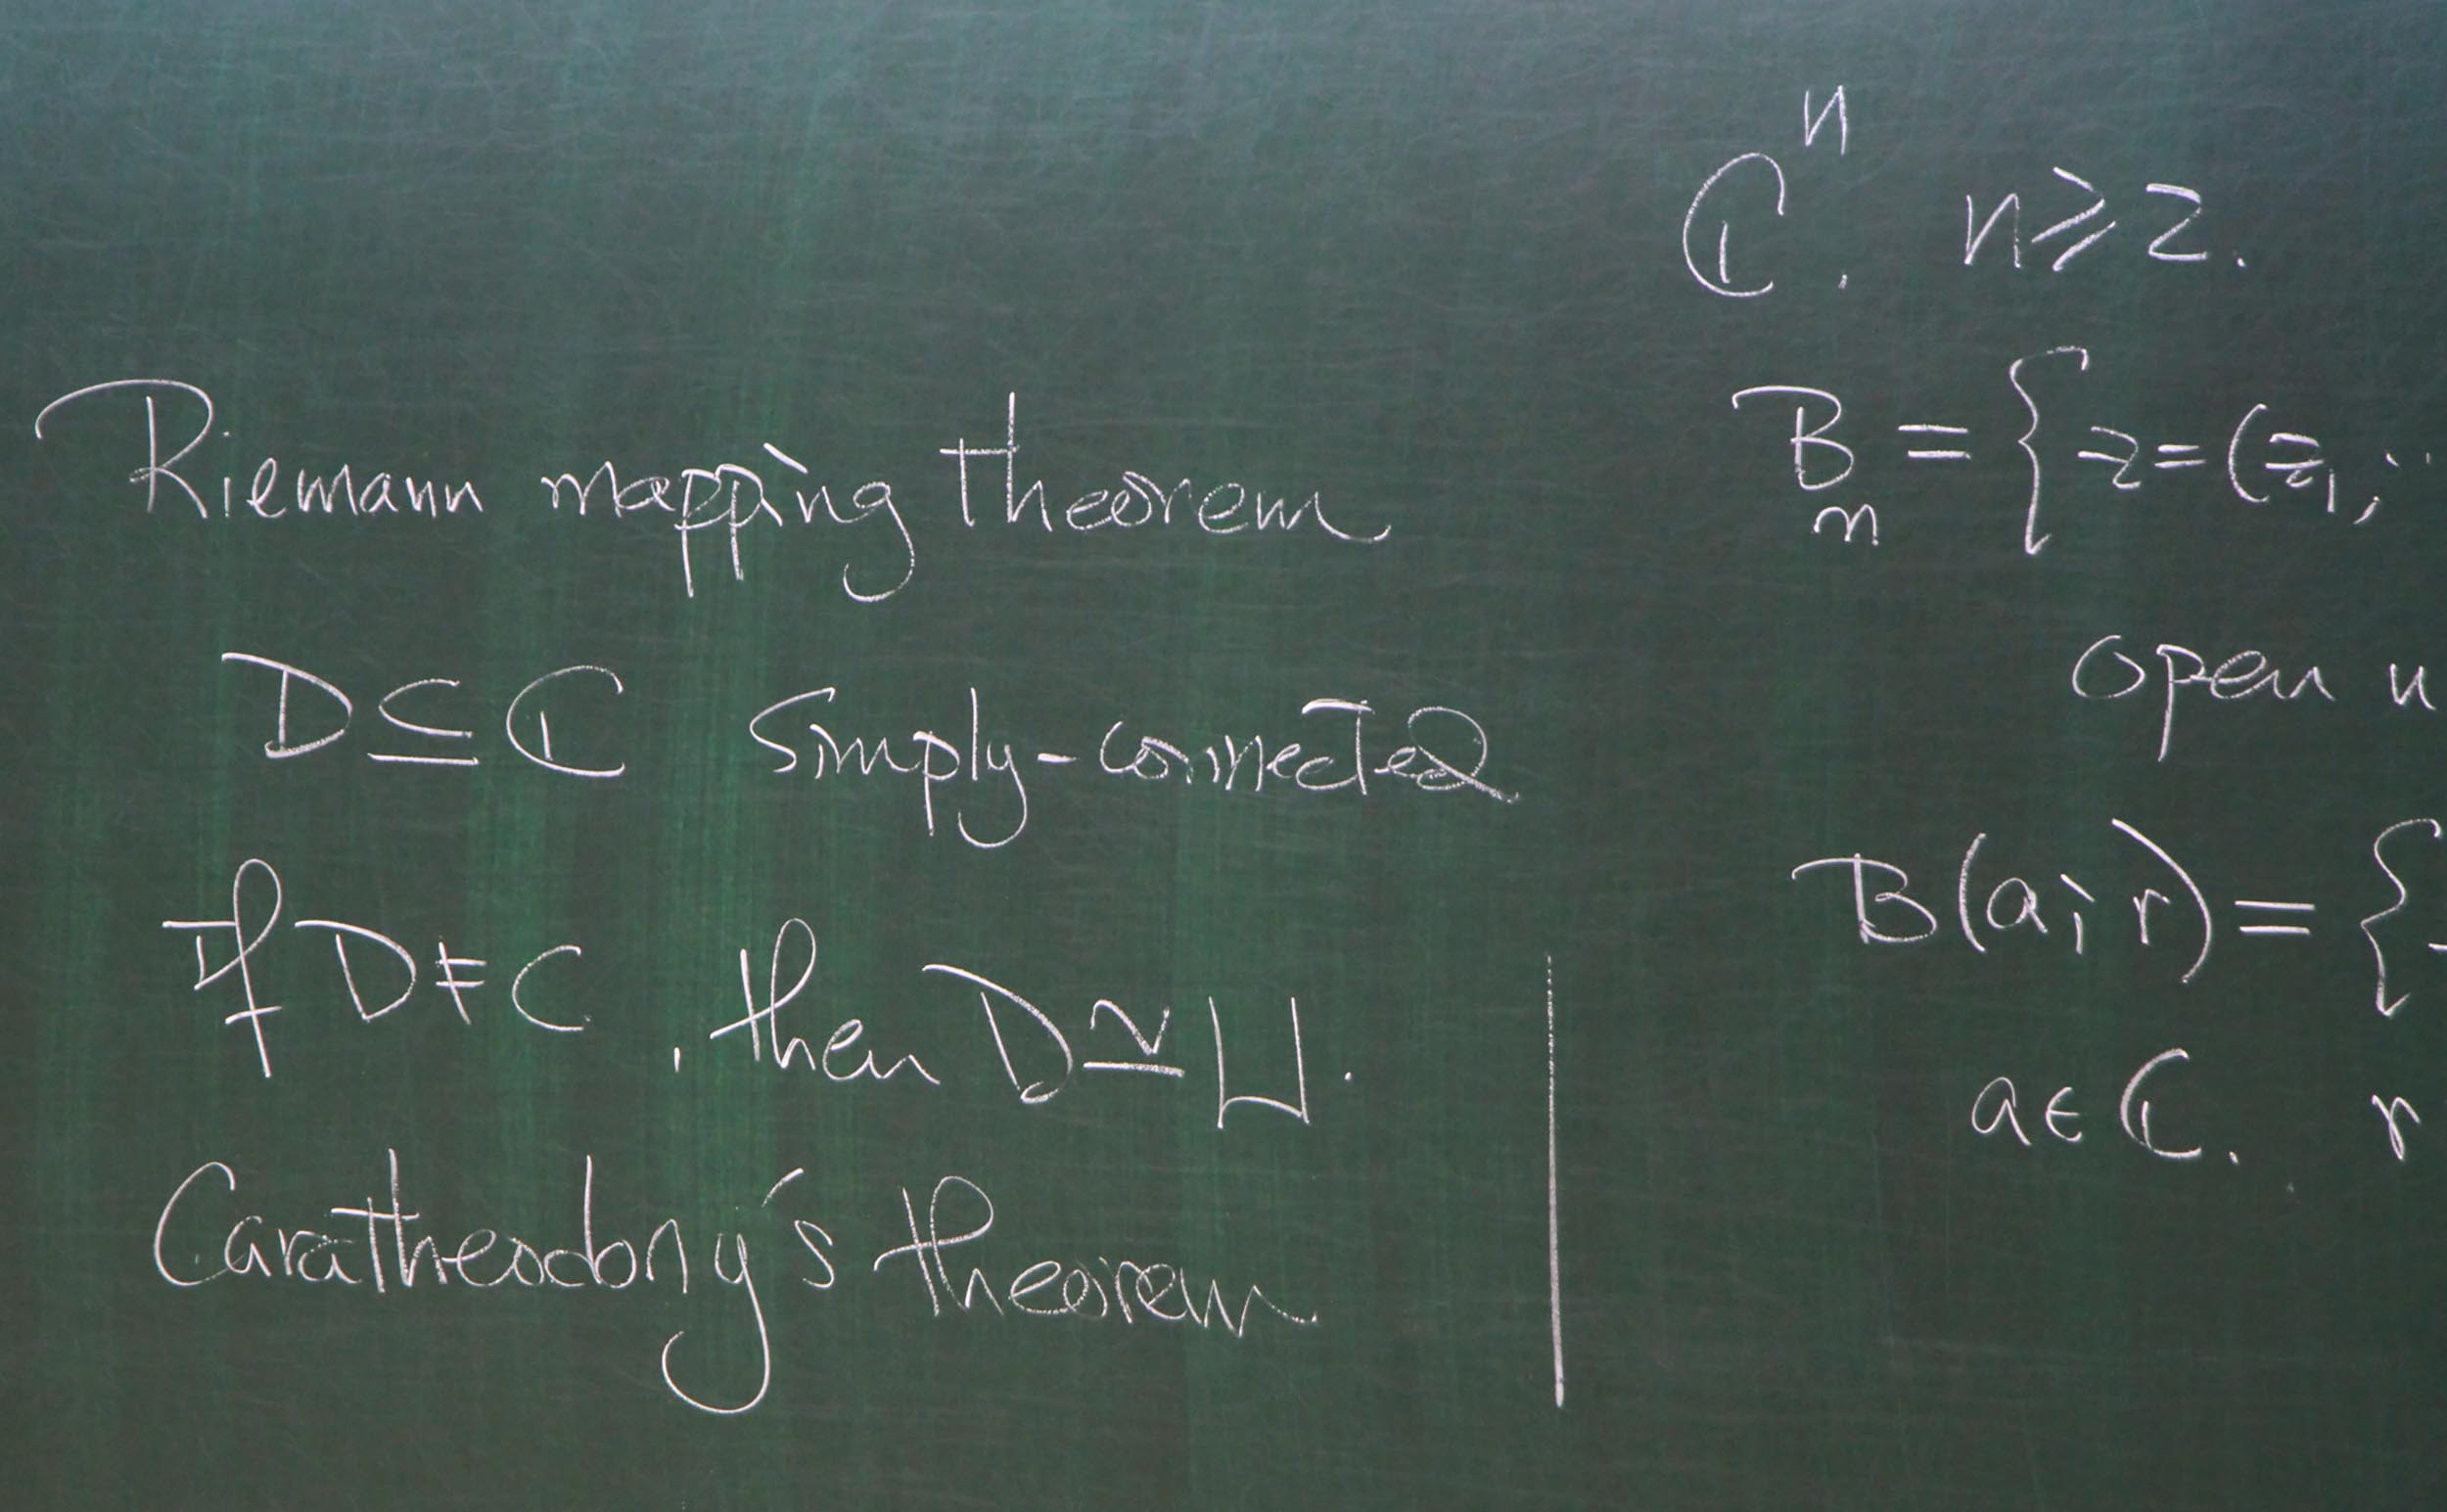 Riemann mapping theorem
D ⊆ ℂ simply-connected
If D ≠ C, then D ≃ U.
Caratheodory's theorem
ℂⁿ. n ≥ 2.
Bₙ = { z = (z₁, ..
open u
B(a; r) = {
a ∈ ℂ. r